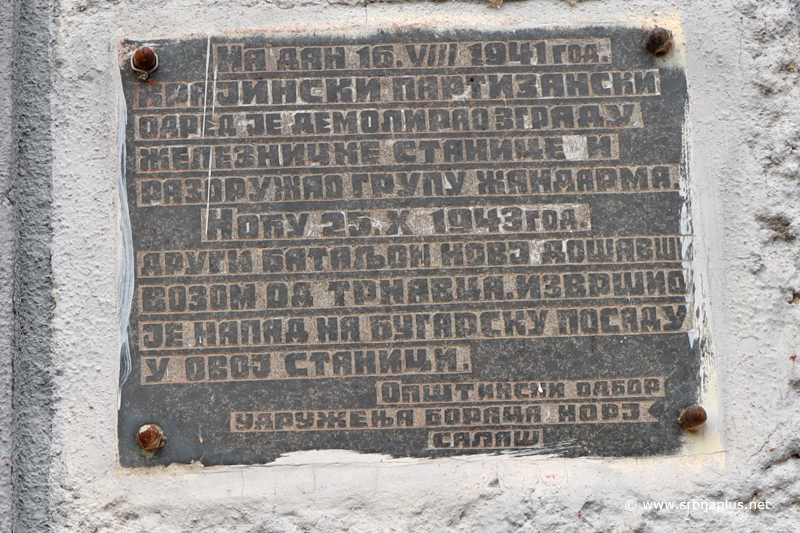 На дан 16. VIII 1941 год.
Крајински партизански
одред је демолирао зграду
железничке станице и
разоружао групу жандарма
Ноћу 25. X 1943 год.
други батаљон НОВЈ дошавш
возом од Трнавца. извршио
је напад на бугарску посаду
у овој станици.
Општински одбор
удружења бораца НОРЈ
САЛАШ
© www.srbijaplus.net